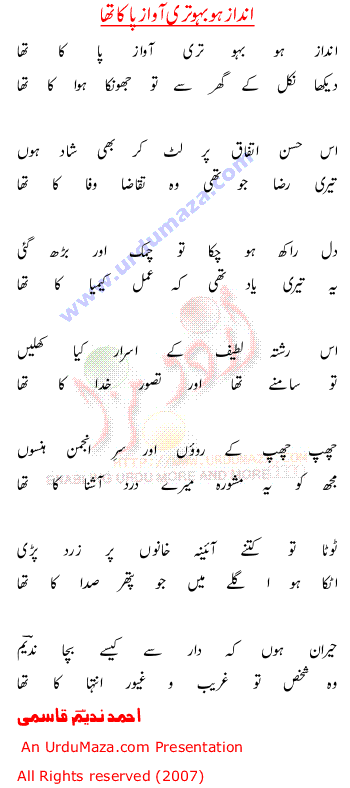 انداز ہو بہو تری آواز پا کا تھا
انداز ہو بہو تری آواز پا کا تھا
دیکھا نکل کے گھر سے تو جھونکا ہوا کا تھا
اس حسن اتفاق پر لٹ کر بھی شاد ہوں
تیری رضا جو تھی وہ تقاضا وفا کا تھا
دل راکھ ہو چکا تو چمک اور بڑھ گئی
یہ تیری یاد تھی کہ عمل کیمیا کا تھا
اس رشتہ لطیف کے اسرار کیا کھلیں
تو سامنے تھا اور تصور خدا کا تھا
چھپ چھپ کے روؤں اور سرِ انجمن ہنسوں
مجھ کو یہ مشورہ میرے درد آشنا کا تھا
ٹوٹا تو کتنے آئینہ خانوں پر زرد پڑی
اٹکا ہو ا گلے میں جو پتھر صدا کا تھا
حیران ہوں کہ دار سے کیسے بچا ندیمؔ
وہ شخص تو غریب و غیور انتہا کا تھا
احمد ندیمؔ قاسمی
An UrduMaza.com Presentation
All Rights reserved (2007)
www.urdumaza.com
HTTP://WWW.URDUMAZA.COM
ENABLING URDU MORE AND MORE